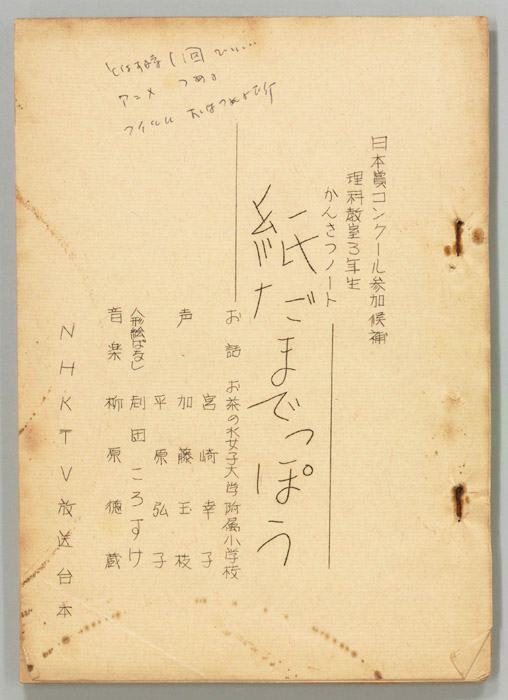 日本賞コンクール参加候補
理科教室3年生
かんさつノート
紙だまでっぽう
お話 お茶の水女子大学附属小学校
宮崎幸子
声 加藤玉枝
平原弘子
人形絵ばなし 劇団ころすけ
音楽 柳原徳蔵
NHKTV放送台本
アニメ つめる